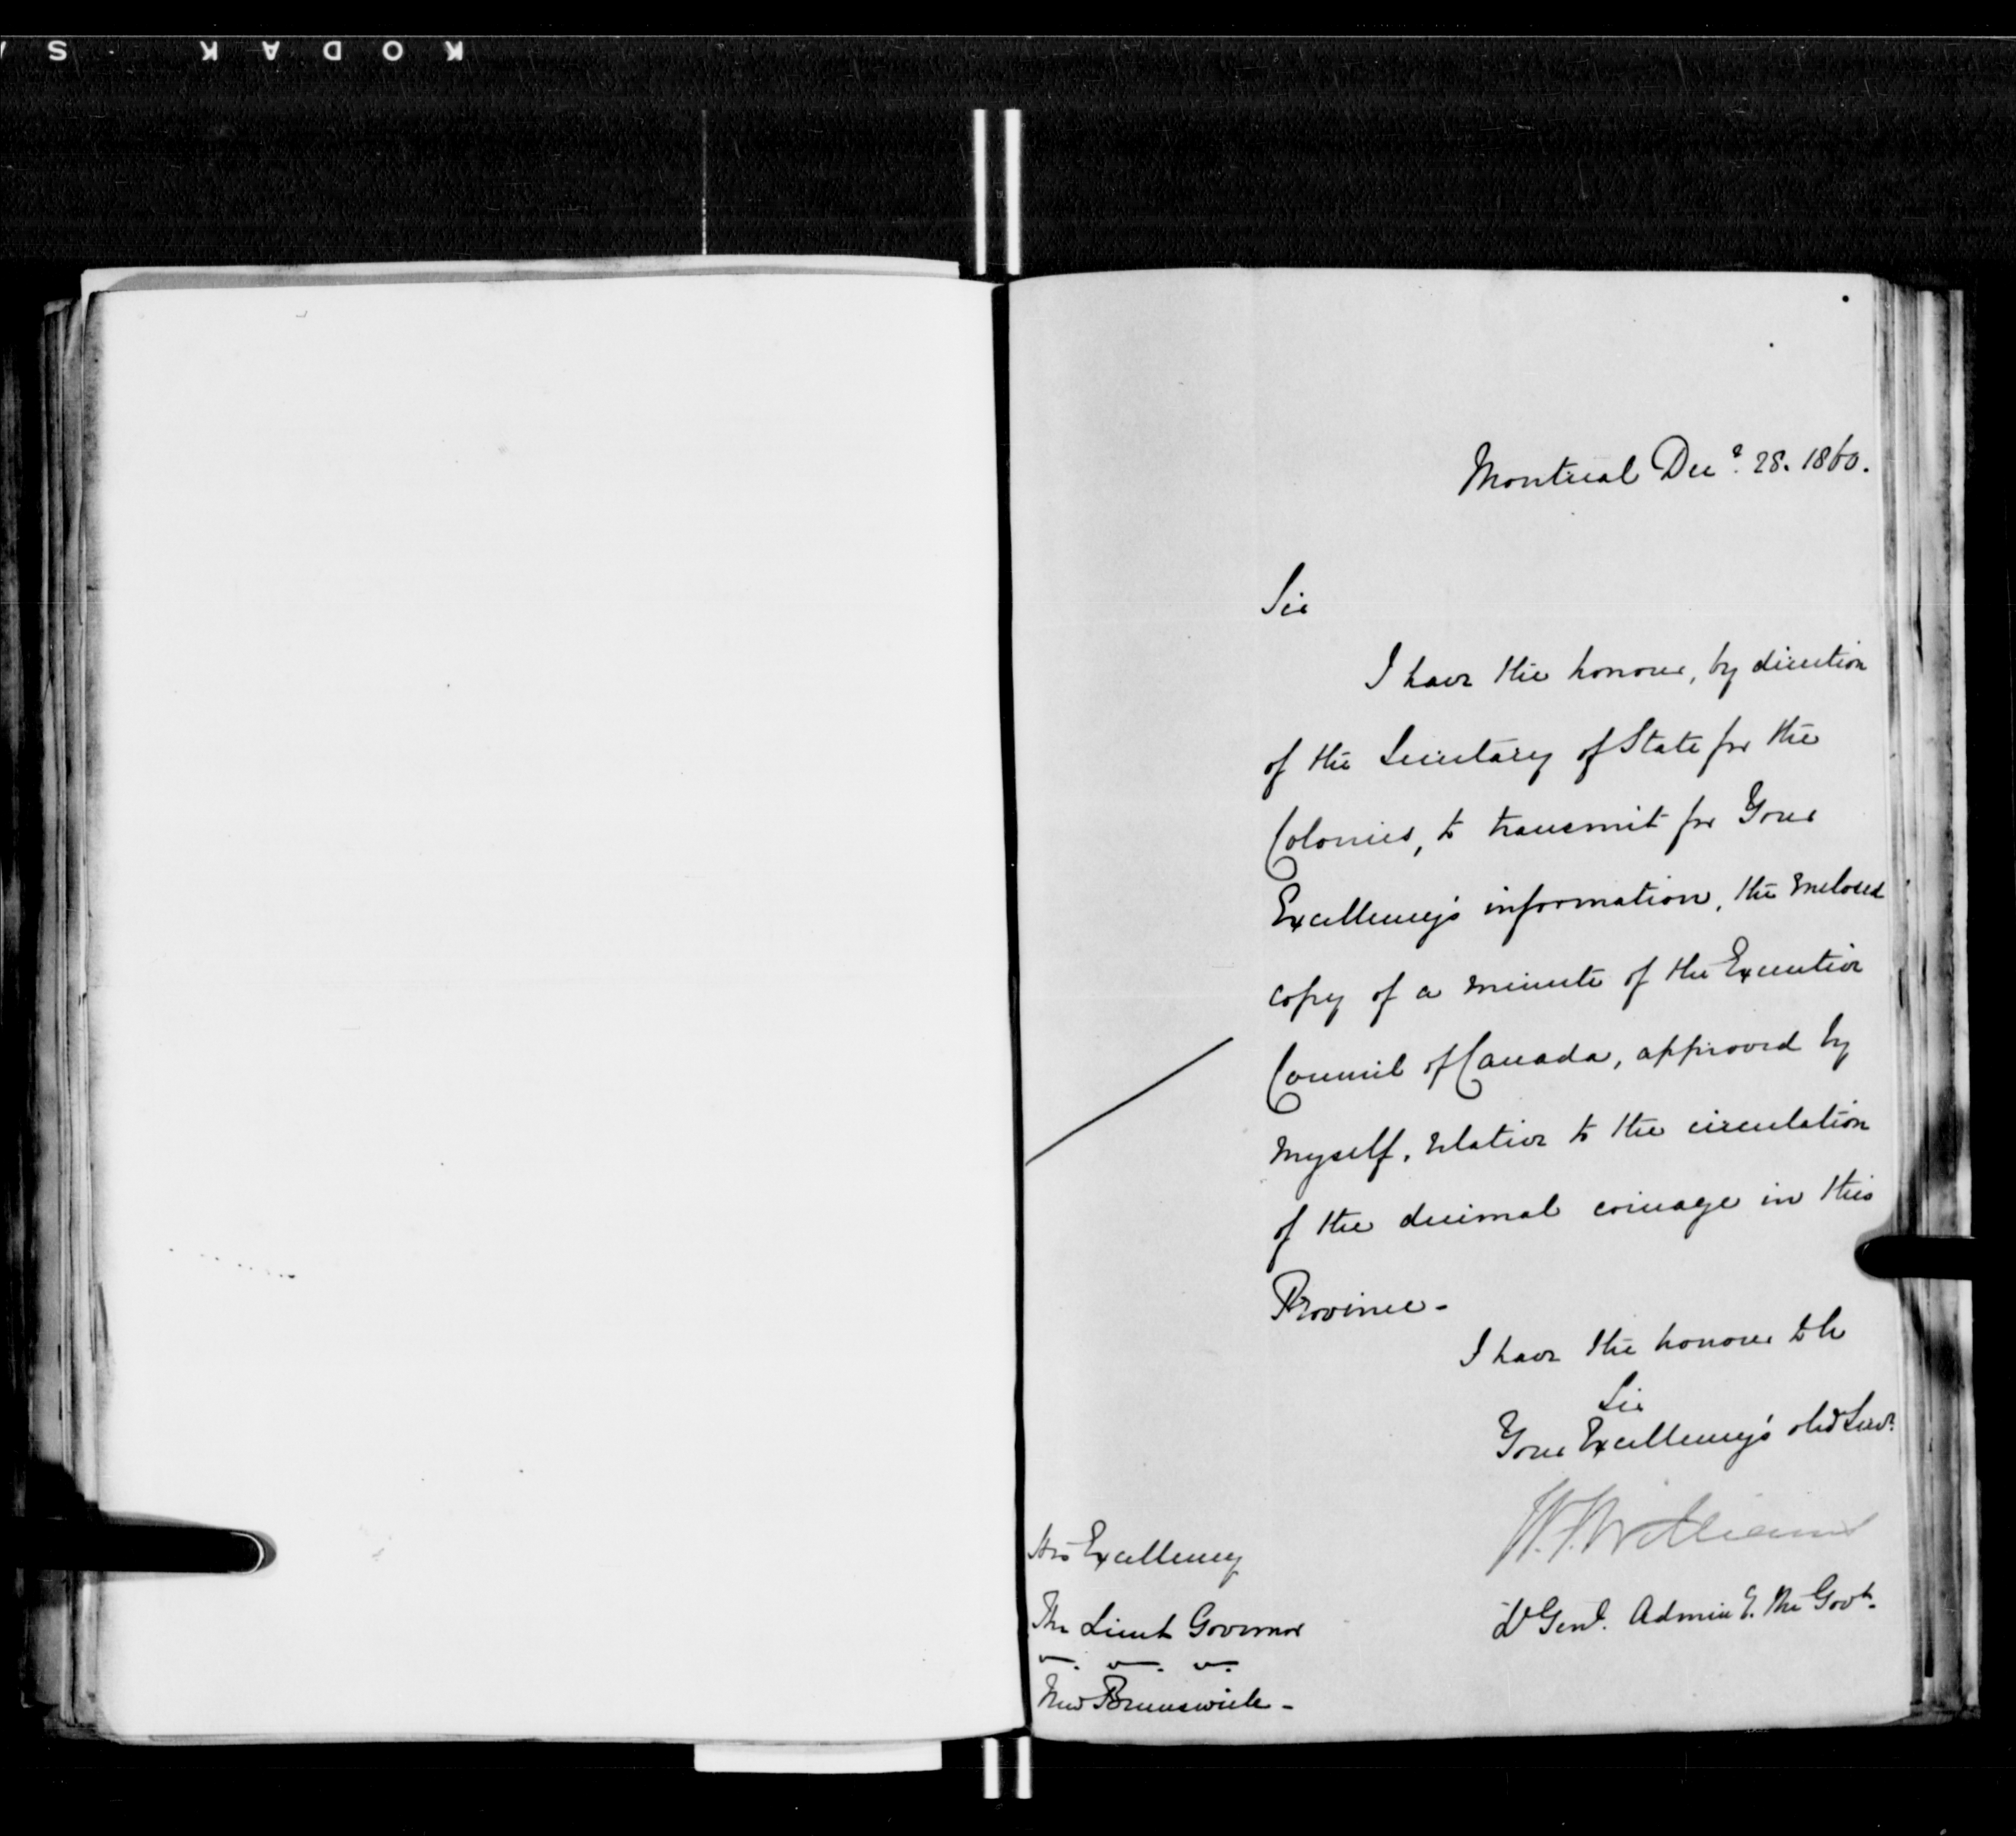 KODAK S
Montreal Decr. 28. 1860.
Sir
I have the honour, by direction
of the Secretary of State for the
Colonies, to transmit for Your
Excellency's information, the enclosed
copy of a minute of the Executive
Council of Canada, approved by
myself, relative to the circulation
of the decimal coinage in this
Province -
I have the honour to be
Sir
Your Excellency's obed Servt.
W. F. Williams
Lt Genl. Admin g. the Govt.
His Excellency
The Lieut Governor
New Brunswick -